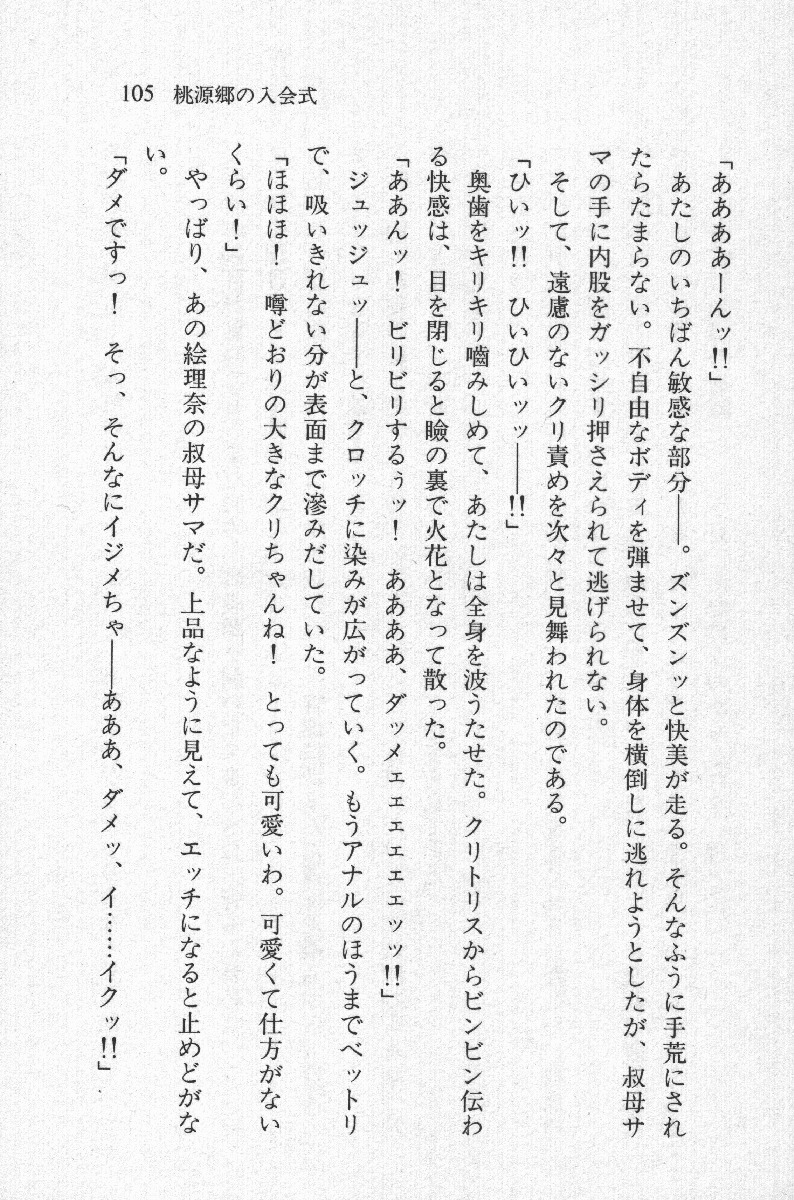 105 桃源郷の入会式
「ああああーんッ!!」
　あたしのいちばん敏感な部分——。ズンズンッと快美が走る。そんなふうに手荒にされ
たらたまらない。不自由なボディを弾ませて、身体を横倒しに逃れようとしたが、叔母サ
マの手に内股をガッシリ押さえられて逃げられない。
　そして、遠慮のないクリ責めを次々と見舞われたのである。
「ひいッ!!　ひいひいッッ——!!」
　奥歯をキリキリ嚙みしめて、あたしは全身を波うたせた。クリトリスからビンビン伝わ
る快感は、目を閉じると瞼の裏で火花となって散った。
「ああんッ！　ビリビリするぅッ！　ああああ、ダッメェェェェェェッッ!!」
　ジュッジュッ——と、クロッチに染みが広がっていく。もうアナルのほうまでベットリ
で、吸いきれない分が表面まで滲みだしていた。
「ほほほ！　噂どおりの大きなクリちゃんね！　とっても可愛いわ。可愛くて仕方がない
くらい！」
　やっぱり、あの絵理奈の叔母サマだ。上品なように見えて、エッチになると止めどがな
い。
「ダメですっ！　そっ、そんなにイジメちゃ——あああ、ダメッ、イ……イクッ!!」